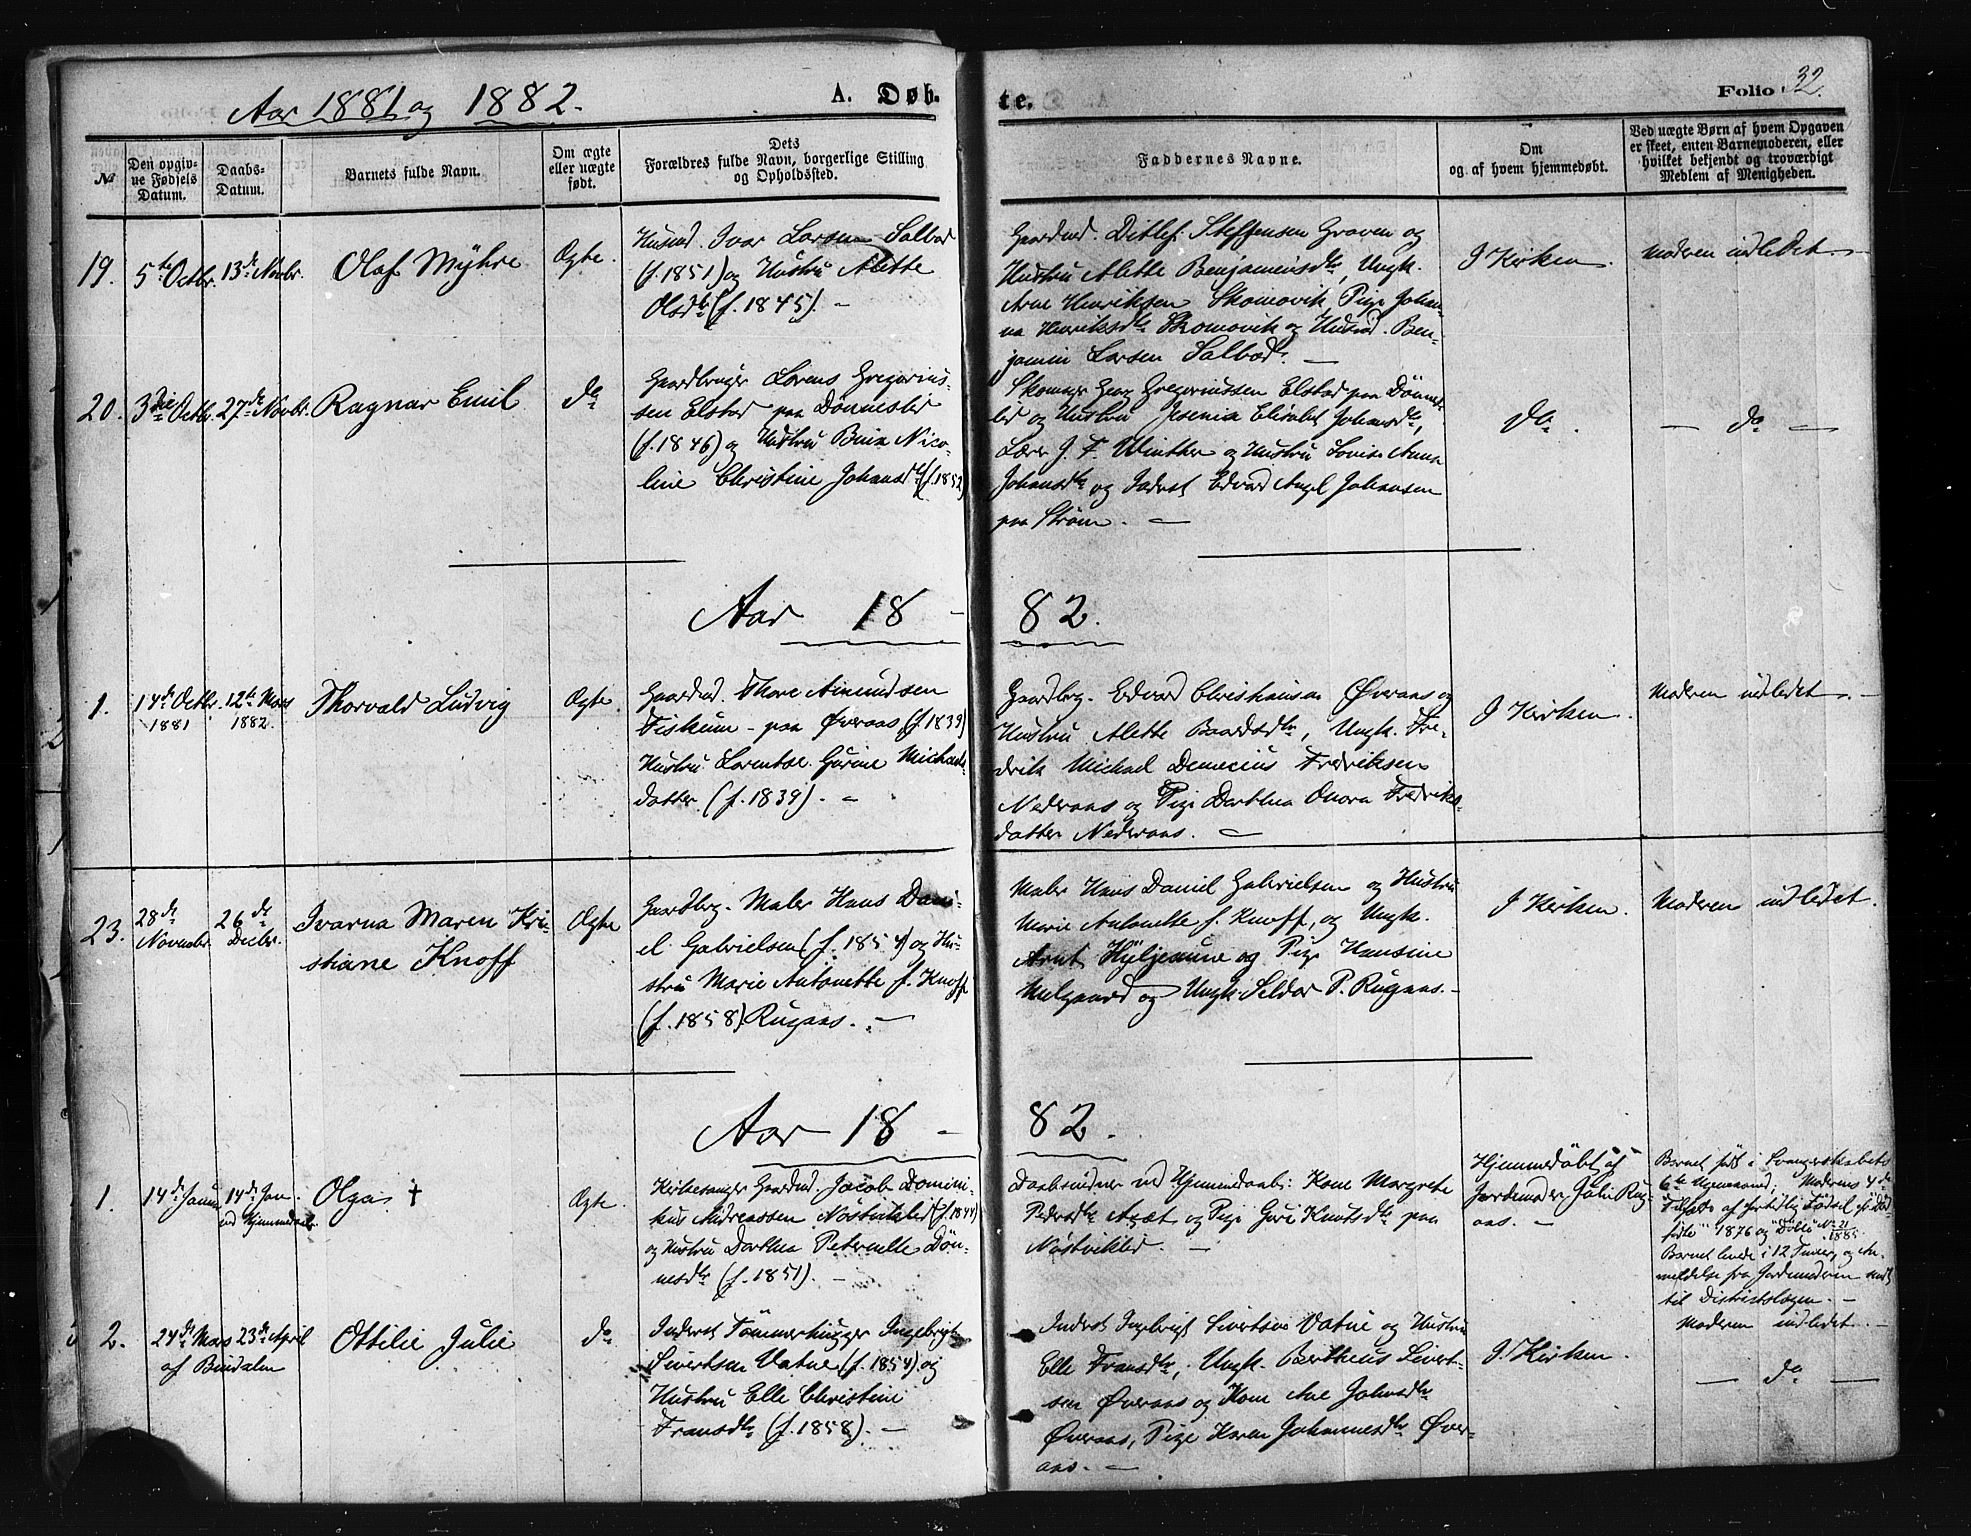 Aar 1881 og 1882.
A. Døb.
te.
Folio 32.
№
Den opgiv-
ne Fødsels
Datum.
Daabs-
Datum.
Barnets fulde Navn.
Om ægte
eller uægte
født.
Dets
Forældres fulde Navn, borgerlige Stilling
og Opholdssted.
Faddernes Navne.
Om
og af hvem hjemmedøbt.
Ved uægte Børn af hvem Opgaven
er skeet, enten Barnemoderen, eller
hvilket bekjendt og troværdigt
Medlem af Menigheden.
19.
5te Octbr.
13de Novbr.
Olaf Myhre
Ægte.
Husmd. Ivar Larsen Salbod
(f. 1851) og Hustru Alette
Olsdtr (f. 1845). –
Gaardmd. Ditlef Steffensen Graven og
Hustru Alette Benjaminsdtr, Ungk.
Arne Henriksen Skomovik, Pige Johan-
na Henriksdtr Skomovik og Husmd. Ben-
jamin Larsen Salbod. –
I Kirken.
Moderen indledet. –
20.
3die Octbr.
27de Novbr.
Ragnar Emil
do
Gaardbruger Lorens Gregorius-
sen Elstad paa Dönneslid
(f. 1846) og Hustru Nico-
line Christine Johansdtr (f. 1852)
Gregoriussen Elstad paa Dönnes-
lid og Hustru Jesenia Elisabet Johansdtr,
Lærer J. F. Winther og Hustru Lovise Anna
Johansdtr og Inderst Edvard Johansen
paa Ström. –
do.
– do –
Aar 18 –
82.
1.
14de Octbr.
1881
12te Mars
1882.
Thorvald Ludvig
Ægte.
Gaardmd. Thore Amundsen
Fiskum – paa Øveraas (f. 1839)
Hustru Lorentse Gurine Michaels-
datter (f. 1839). –
Gaardbrg. Edvard Christiansen Øveraas og
Hustru Alette Baardsdtr, Ungk. Fre-
drik Michael Demecius Fredriksen
Nederaas og Pige Dorthea Onora Fredriks-
datter Nederaas. –
I Kirken.
Moderen indledet. –
23.
28de
Novembr.
26de
Decbr.
Ivarna Maren Kri-
stiane Knoff
Ægte
Gaardbrg. Maler Hans Dani-
el Gabrielsen (f. 1854) og Hu-
stru Marie Antonette f. Knoff
(f. 1858) Rugaas. –
Maler Hans Daniel Gabrielsen og Hustru
Marie Antonette f. Knoff, og Ungk.
Arnt og Pige Hansine
Melgaard og Ungk. Seldor P. Rugaas. –
I Kirken.
Moderen indledet.
Aar 18 –
82.
1.
14de Januar
14de Jan.
ved Hjemmedaab.
Olga. †
Ægte.
Kirkesanger Gaardmd. Jacob Domini-
kus Andreassen Nostviklid (f. 1844)
og Hustru Dorthea Peternelle Dön-
nesdtr (f. 1851). –
Daabsvidner ved Hjemmedaab: Kone Margrete
Pedersdtr Agæt og Pige Guri Knutsdtr paa
Nöstviklid. –
Hjemmedöbt af
Jordemoder Julie Rug-
aas. –
Barnet født i Svangerskabets
6te Maaned. Moderens 4de
Tilfælde af fortidlig Fødsel, cfr "Død-
fødte" 1876 og "Døbte" No 21 1885.
Barnet levede i 12 Timer og An-
meldelse fra Jordemoderen sendt
til Districtslægen. –
Moderen indledet. –
2.
24de Mars
af Bindalen
23de April
Ottilie Julie
do
Inderst Tømmerhugger Ingebrigt
Sivertsen Vatne (f. 1854) og
Hustru Elle Christine
Fransdtr (f. 1858). –
Inderst Ingebrigt Sivertsen Vatne og Hustru
Elle Fransdtr, Ungk. Bertheus Sivert-
sen Øveraas og Kone Ane Johnsdtr
Øveraas, Pige Karen Johannesdtr Øver-
aas. –
I Kirken.
– do –